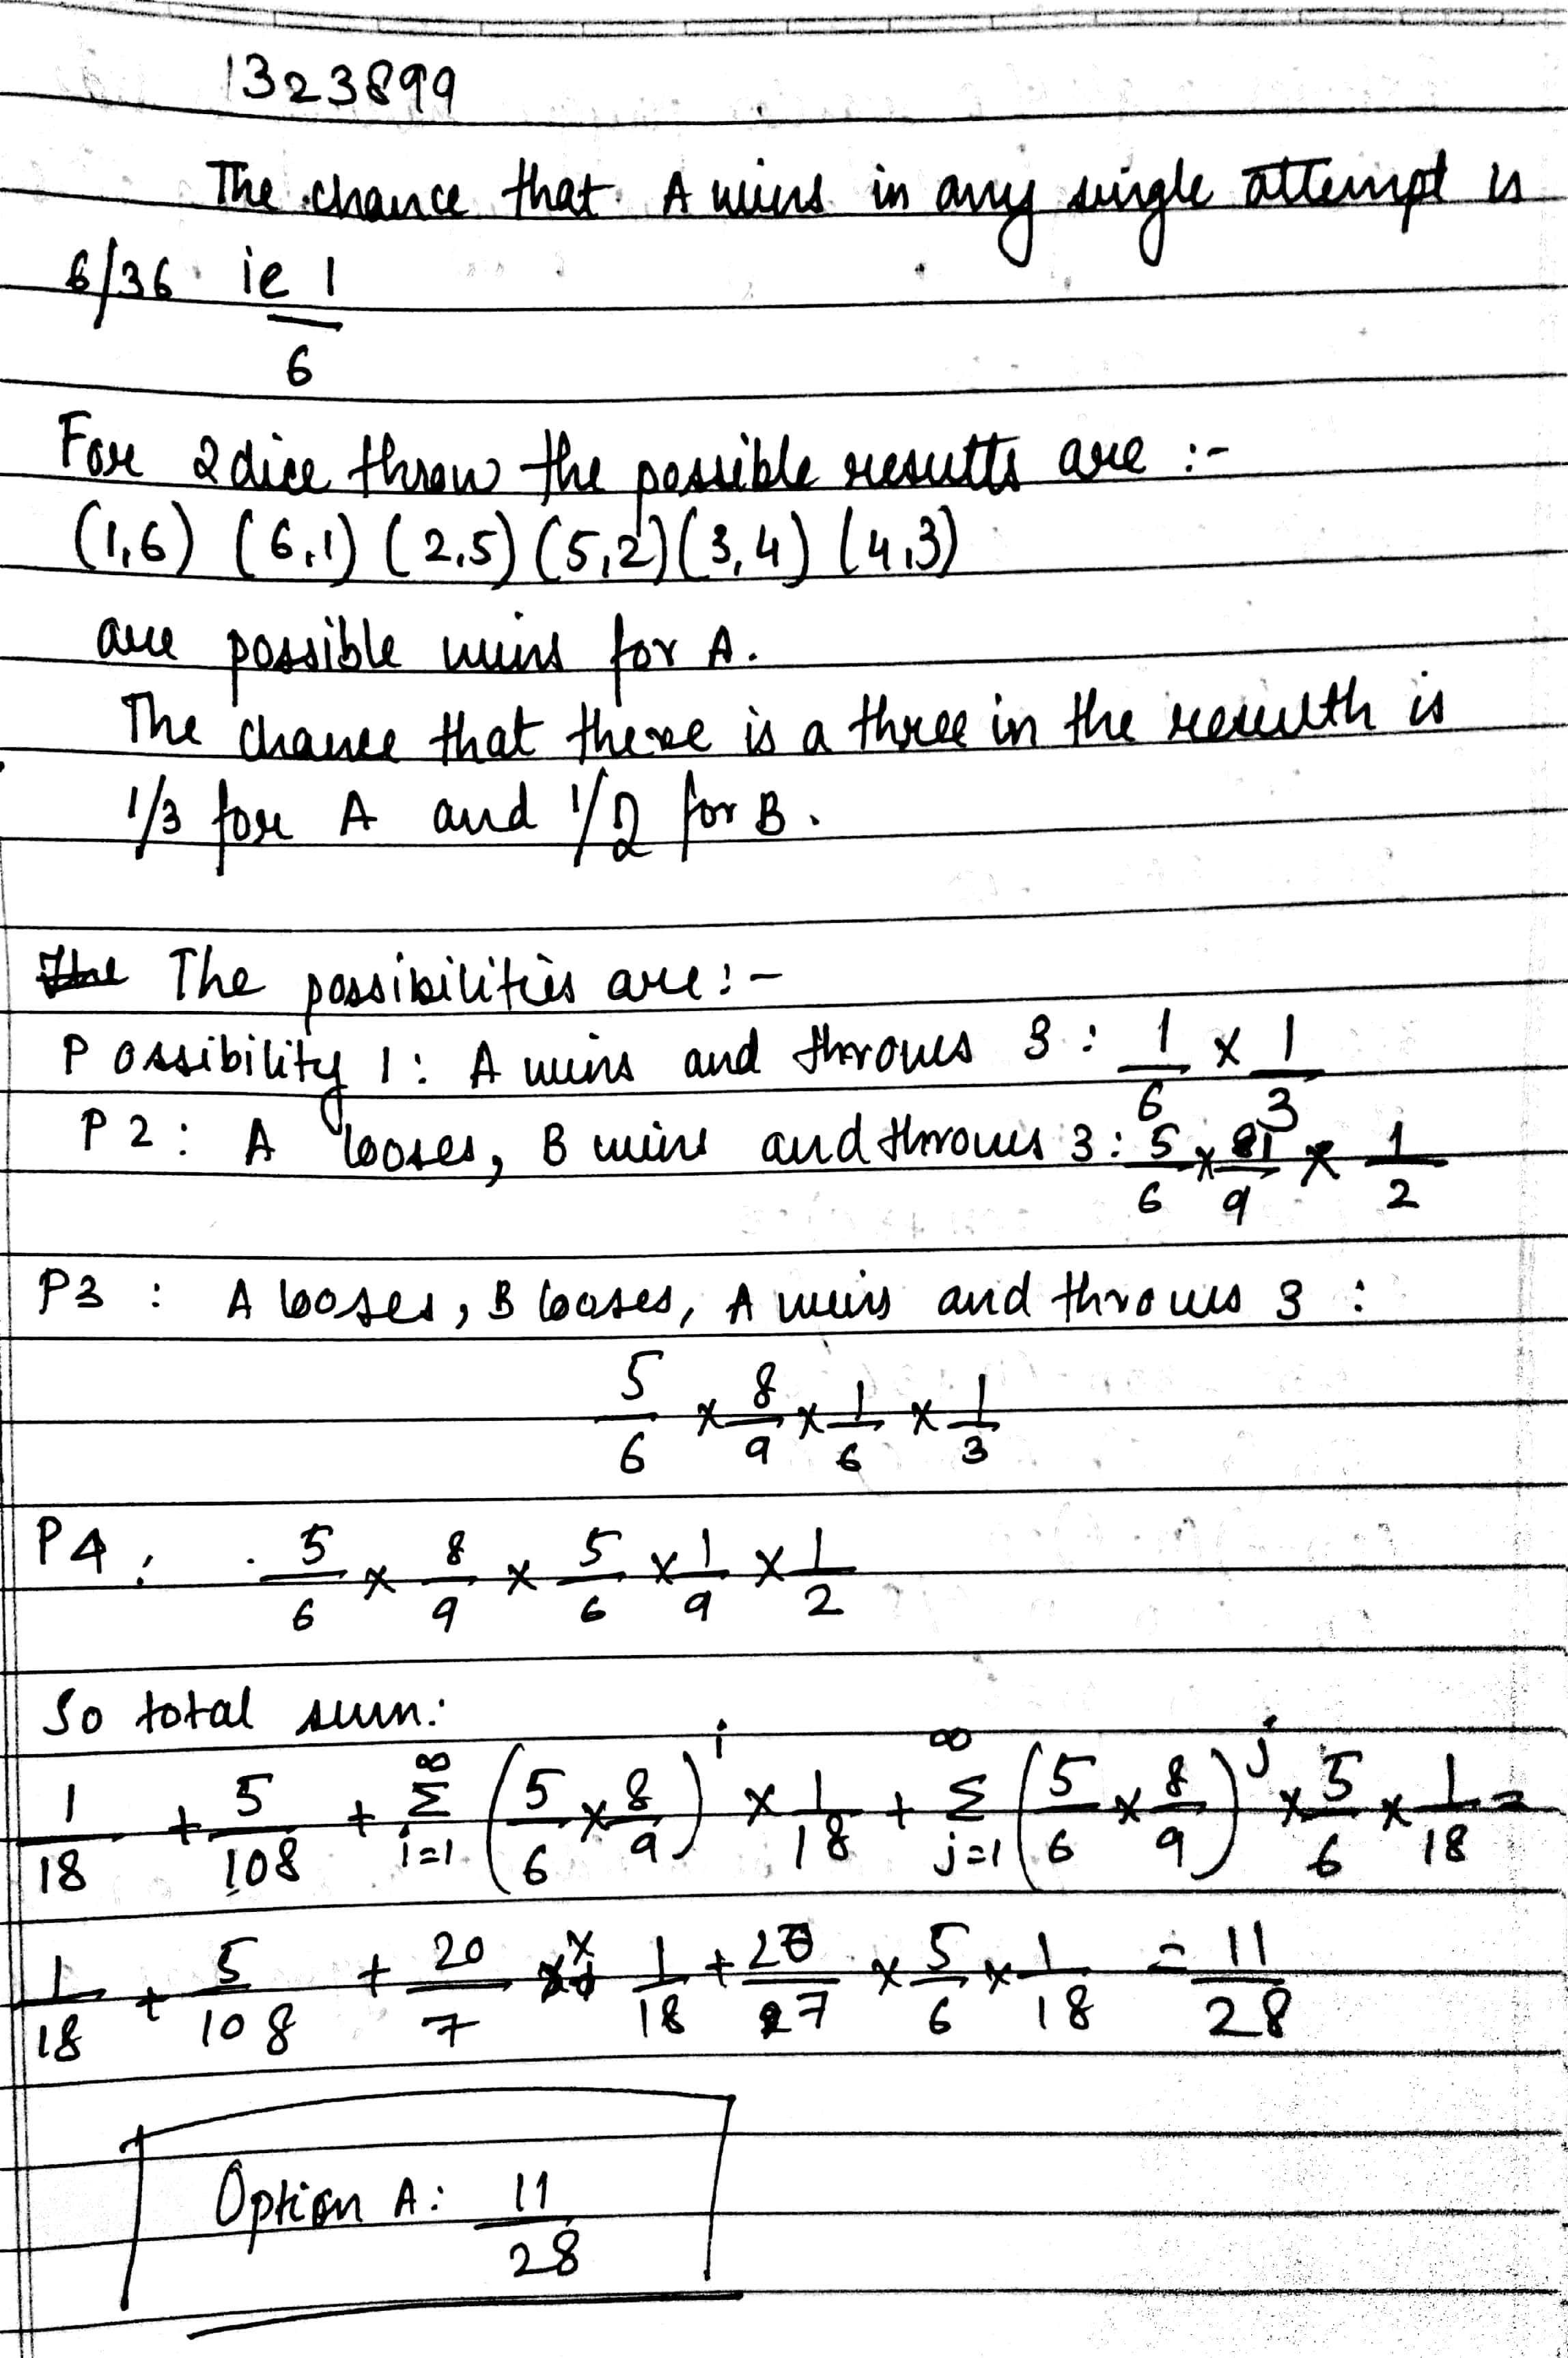 1323899
The chance that A wins in any single attempt is
6/36 ie 1
6
For 2 dice throw the possible results are :-
(1,6) (6,1) (2,5) (5,2) (3,4) (4,3)
are possible wins for A.
The chance that there is a three in the resulth is
1/3 for A and 1/2 for B.
The The possibilities are:-
Possibility 1: A wins and throws 3: 1/6 × 1/3
P2: A looses, B wins and throws 3: 5/6 × 1/9 × 1/2
P3 : A looses, B looses, A wins and throws 3 :
5/6 × 8/9 × 1/6 × 1/3
P4: 5/6 × 8/9 × 5/6 × 1/9 × 1/2
So total sum:
1/18 + 5/108 + ∞Σi=1 (5/6 × 8/9)^i × 1/18 + ∞Σj=1 (5/6 × 8/9)^j × 5/6 × 1/18 =
1/18 + 5/108 + 20/7 × 1/18 + 20/7 × 5/6 × 1/18 = 11/28
Option A: 11/28